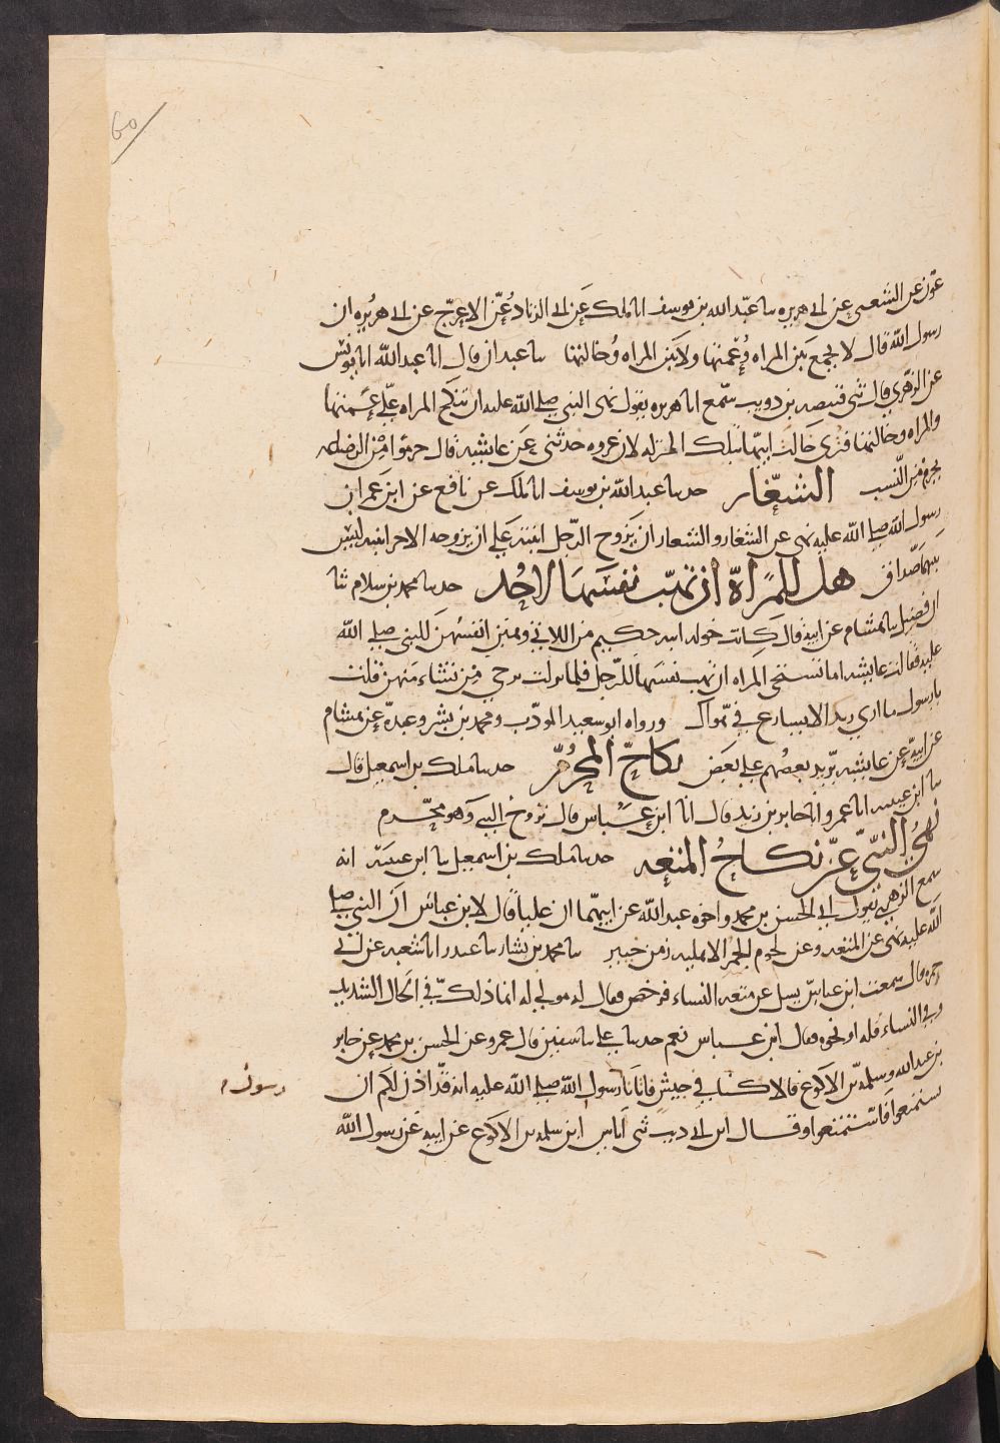 60
عون عن الشعبي عن ابي هريره سا عبد الله بن يوسف انا ملك عن ابي الزناد عن الاعرج عن ابي هريره ان
رسول الله قال لا يجمع بين المراه وعمتها ولا بين المراه وخالتها سا عبدان قال انا عبد الله انا يونس
عن الزهري قال ثني قبيصه بن ذويب سمع ابا هريره يقول نهى النبي صلى الله عليه ان تنكح المراه على عمتها
والمراه وخالتها فنرى خالت ابيها بتلك المنزله لان عروه حدثني عن عايشه قال حرموا من الرضاعه
يحرم من النسب الشغار حدسا عبد الله بن يوسف انا ملك عن نافع عن ابن عمر ان
رسول الله صلى الله عليه نهى عن الشغار والشغار ان يزوج الرجل ابنته على ان يزوجه الاخر ابنته ليس
بينهما صداق هل للمراة ان تهب نفسها لاحد حدسا محمد بن سلام ثنا
ابن فضيل سا هشام عن ابيه قال كانت خوله ابنه حكيم من اللاتي وهبن انفسهن للنبي صلى الله
عليه فقالت عايشه اما تستحي المراه ان تهب نفسها للرجل فلما نزلت ترجي من تشاء منهن قلت
يا رسول ما ارى ربك الا يسارع في هواك ورواه ابو سعيد المودب ومحمد بن بشر وعبدة عن هشام
عن ابيه عن عايشه يزيد بعضهم على بعض نكاح المحرم حدسا ملك بن اسمعيل قال
سا ابن عيينه انا عمرو انا جابر بن زيد قال انا ابن عباس قال تزوج النبي وهو محرم
نهي النبي عن نكاح المتعه حدسا ملك بن اسمعيل سا ابن عيينه انه
سمع الزهري يقول ابي الحسن بن محمد واخوه عبد الله عن ابيهما ان عليا قال لابن عباس ان النبي صلى
الله عليه نهى عن المتعه وعن لحوم الحمر الاهليه زمن خيبر سا محمد بن بشار سا غندر انا شعبه عن ابي
جمره قال سمعت ابن عباس يسل عن متعه النساء فرخص فقال له مولى له انما ذلك في الحال الشديد
وفي النساء قله او نحوه فقال ابن عباس نعم حدسا علي سا سفين قال عمرو عن الحسن بن محمد عن جابر
بن عبد الله وسلمه بن الاكوع قالا كنا في جيش فاتانا رسول الله صلى الله عليه انه قد اذن لكم ان
رسول
تستمتعوا فاستمتعوا وقال ابن ابي ذيب ثني اياس ابن سلمه بن الاكوع عن ابيه عن رسول الله